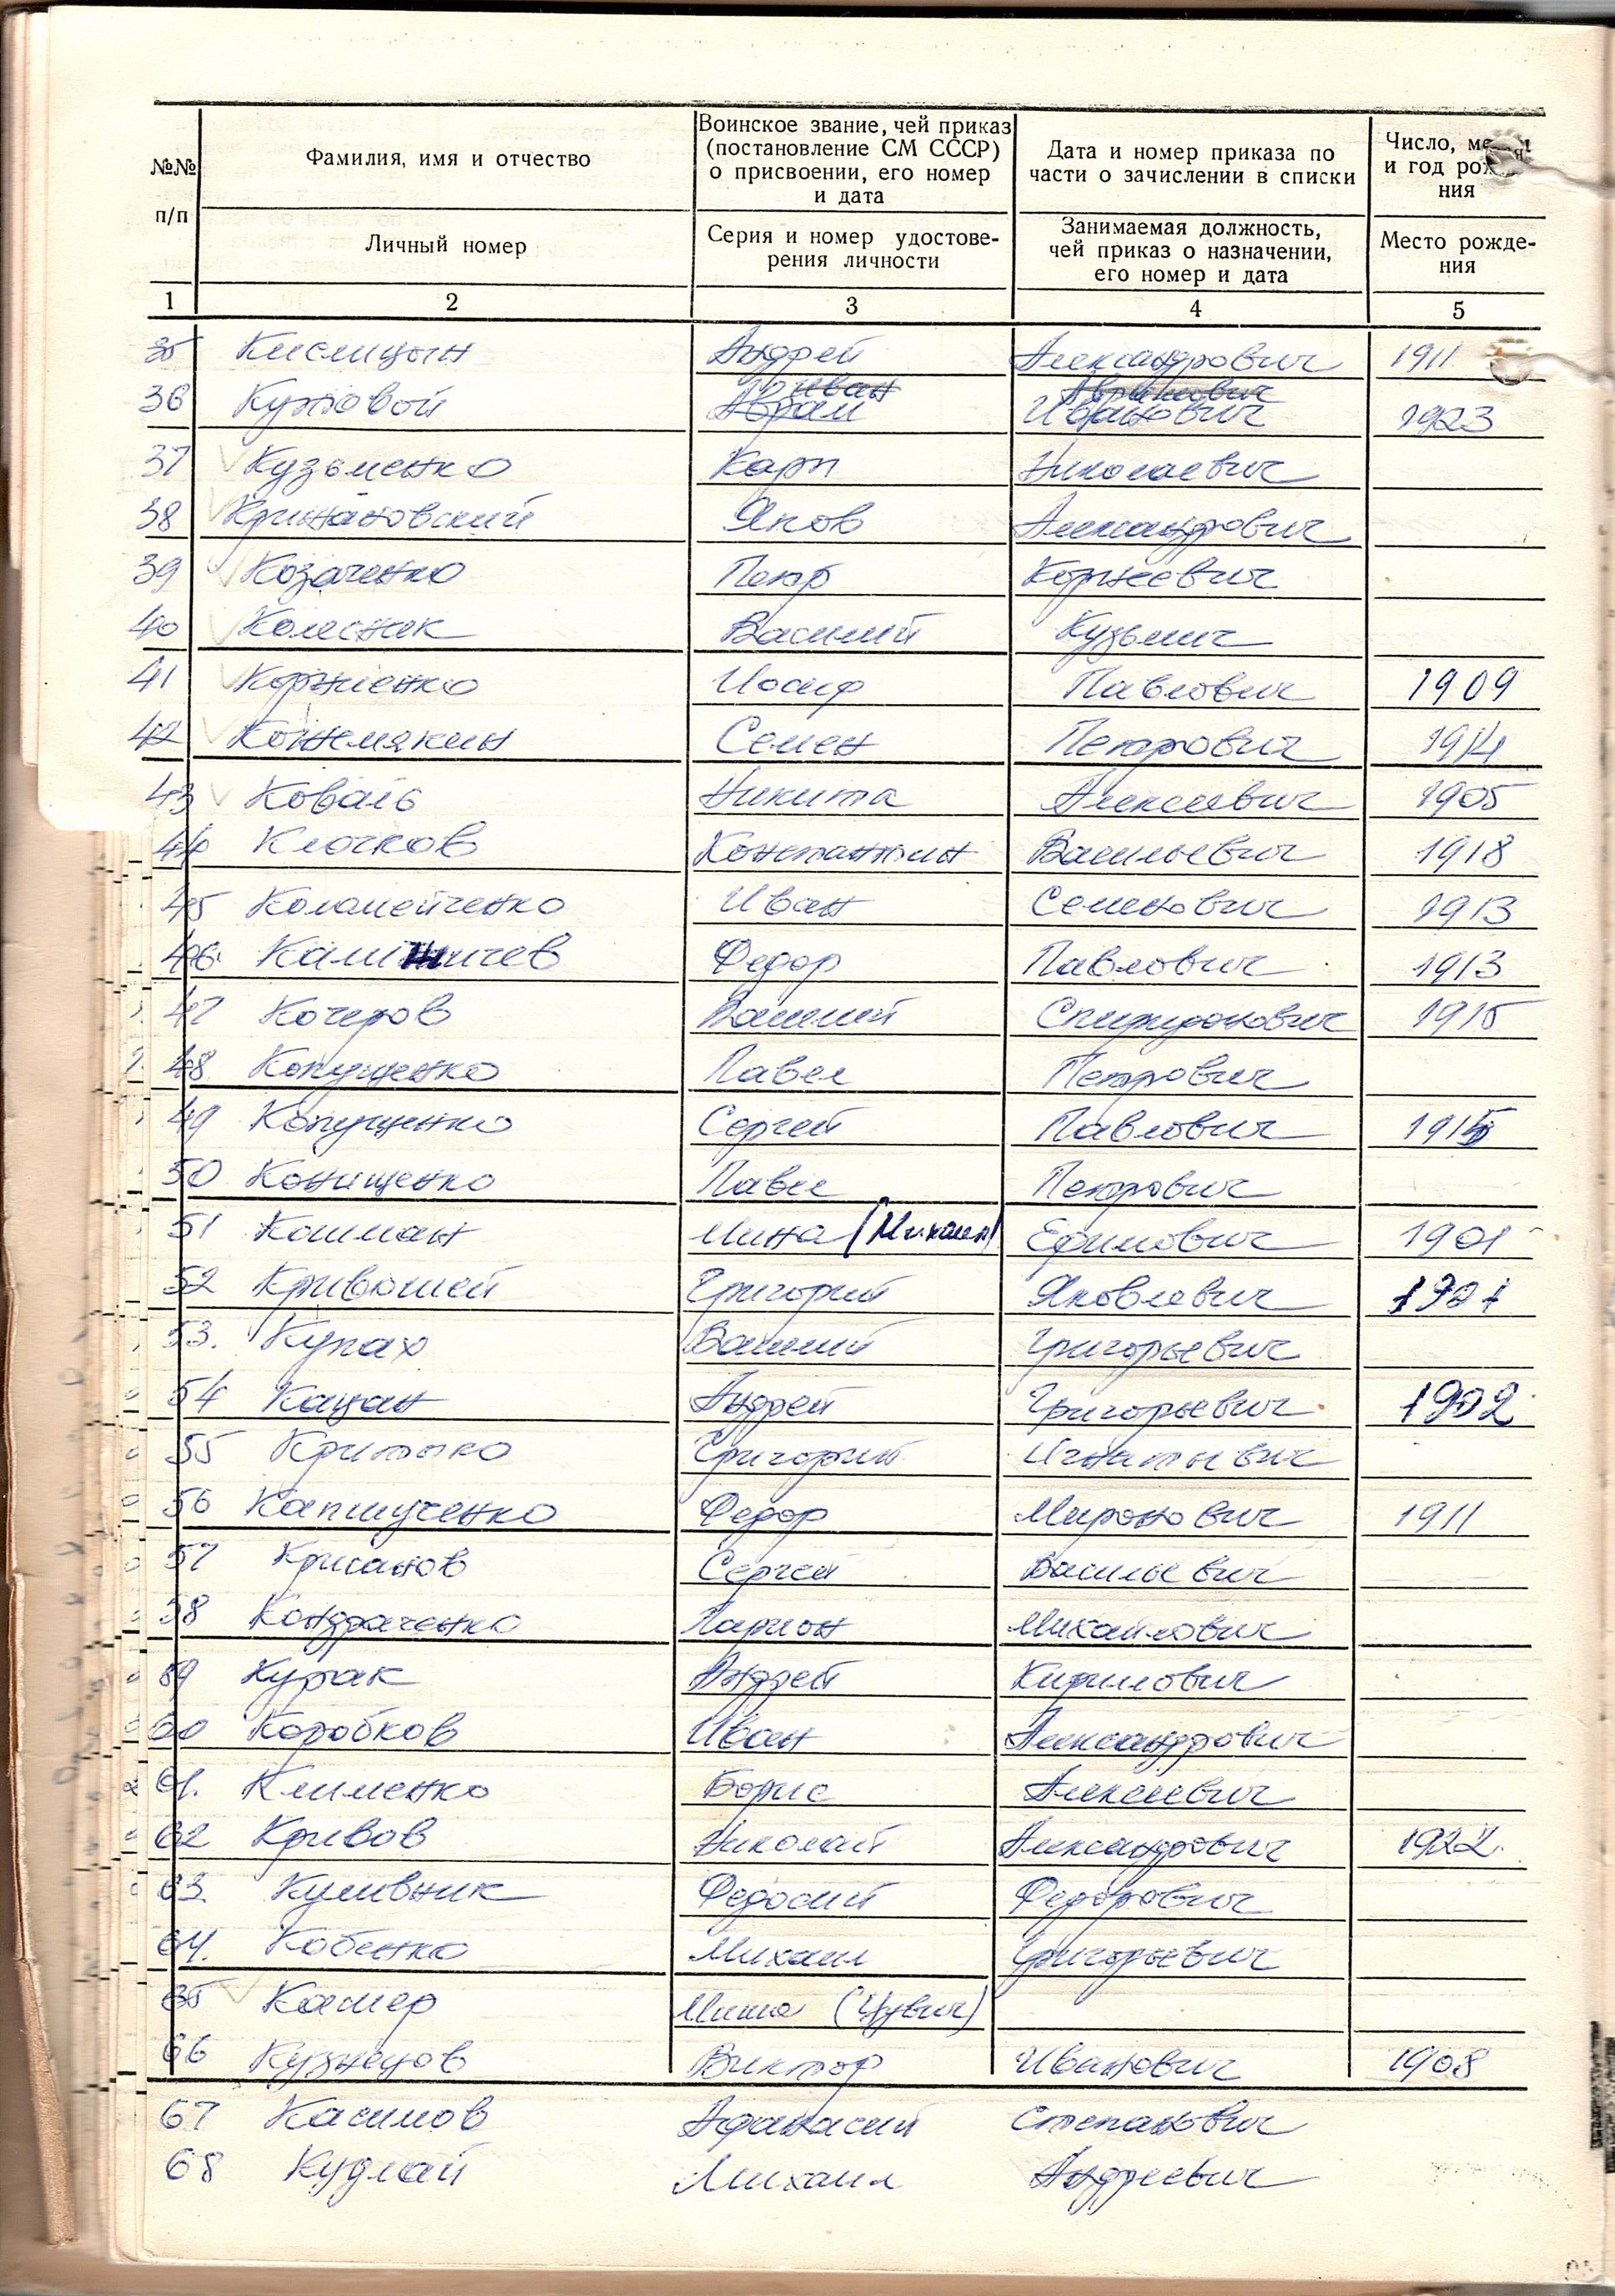 №№ п/п
Фамилия, имя и отчество
Личный номер
Воинское звание, чей приказ
(постановление СМ СССР)
о присвоении, его номер
и дата
Серия и номер удостове-
рения личности
Дата и номер приказа по
части о зачислении в списки
Занимаемая должность,
чей приказ о назначении,
его номер и дата
Число,
и год
ния
Место рожде-
ния
1 2 3 4 5
35 Кислицын Андрей Александрович 1911
36 Кутовой Иван Абрамович Абрам Иванович 1923
37 Кузьменко Карп Николаевич
38 Крижановский Яков Александрович
39 Козаченко Петр Корнеевич
40 Колесник Василий Кузьмич
41 Корниенко Иосиф Павлович 1909
42 Кожемякин Семен Петрович 1914
43 Коваль Никита Алексеевич 1905
44 Клочков Константин Васильевич 1918
45 Коломейченко Иван Семенович 1913
46. Федор Павлович 1913
47 Кочеров Василий Спиридонович 1915
48 Копущенко Павел Петрович
49 Копущенко Сергей Павлович 1915
50 Конищенко Павел Петрович
51 Кошман Мина (Михаил) Ефимович 1901
52 Кривошей Григорий Яковлевич 1901
53. Купах Василий Григорьевич
54 Кацан Андрей Григорьевич 1902
55 Критько Григорий Игнатьевич
56 Капшученко Федор Миронович 1911
57 Крисанов Сергей Васильевич
58 Кондраченко Ларион Михайлович
59 Курак Андрей Кирилович
60 Коробков Иван Александрович
61. Клименко Борис Алексеевич
62 Кривов Николай Александрович 1922
63. Куливник Федосий Федорович
64. Кобенко Михаил Григорьевич
65 Каспер Миша
66 Кузнецов Виктор Иванович 1908
67 Касимов Афанасий Степанович
68 Кудлай Михаил Андреевич